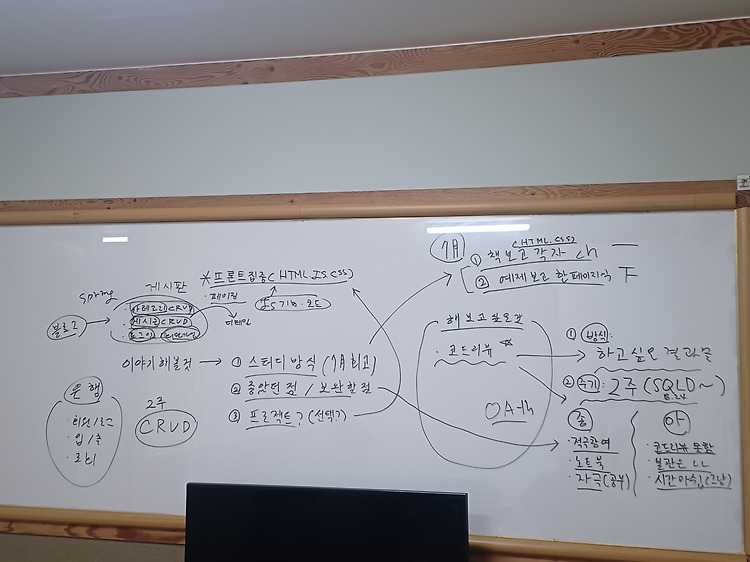 7月
(HTML.CSS)
① 책보고 각자 ch
② 예제 보고 한페이지씩
Spring
게시판
*프론트집중(HTML.JS.CSS)
블로그
· 카테고리CRUD
· 게시글CRUD
· 로그인
· 페이징
JS기능·코드
디테일
이야기해볼것 → ① 스터디 방식 (7月 회고)
② 좋았던 점 / 보완할 점
③ 프로젝트? (선택?)
은행
· 회원/로그
· 입/출
2주
CRUD
해보고싶은것
· 코드리뷰 ☆
OAuth
① 방식:
하고싶은 결과물
② 주기: 2주 (SQLD~)
좋
· 적극참여
· 노트북
· 자극(공부)
아
· 코드리뷰 못함
· 시간아쉽(그냥)